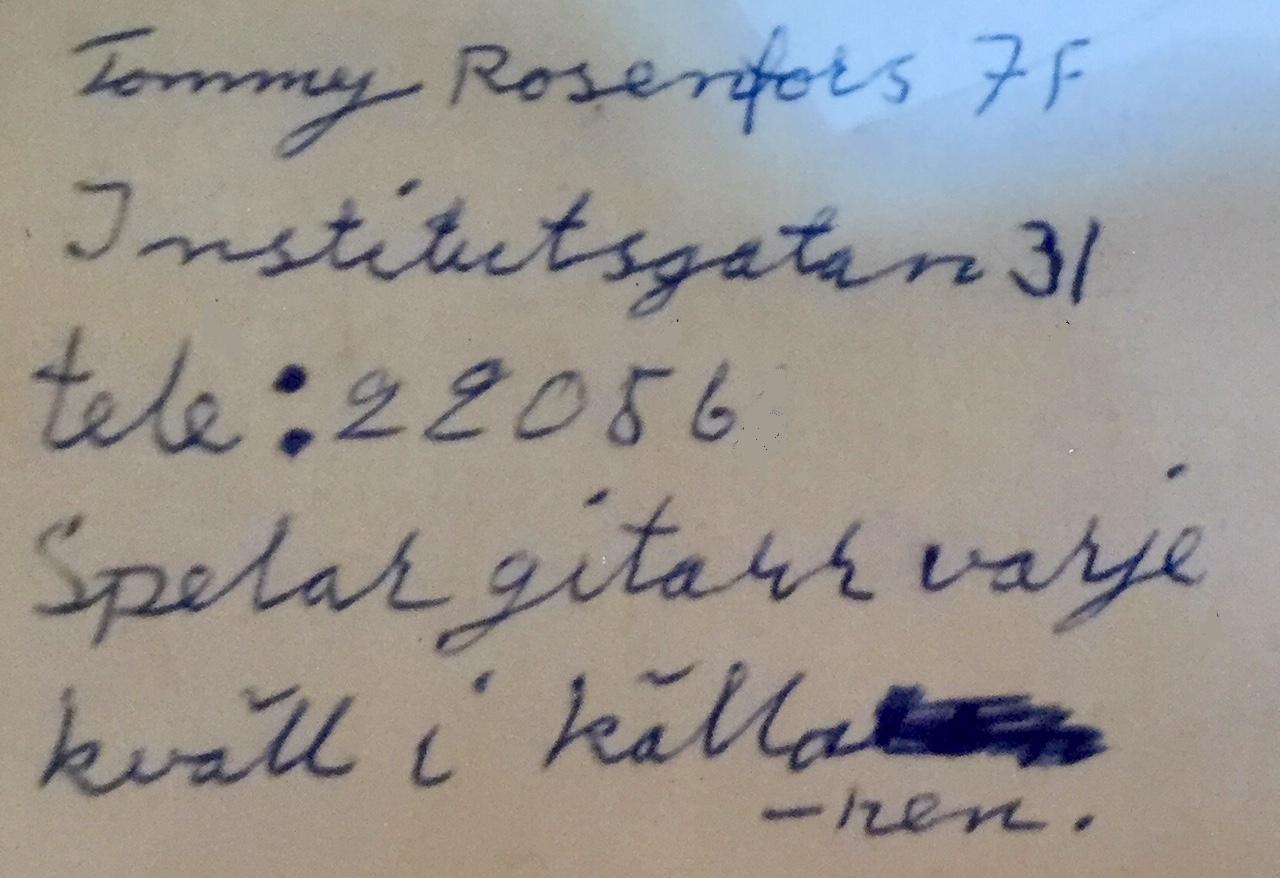 Tommy Rosenfors 7F
Institutsgatan 31
tele: 22056
Spelar gitarr varje
kväll i källa
-ren.